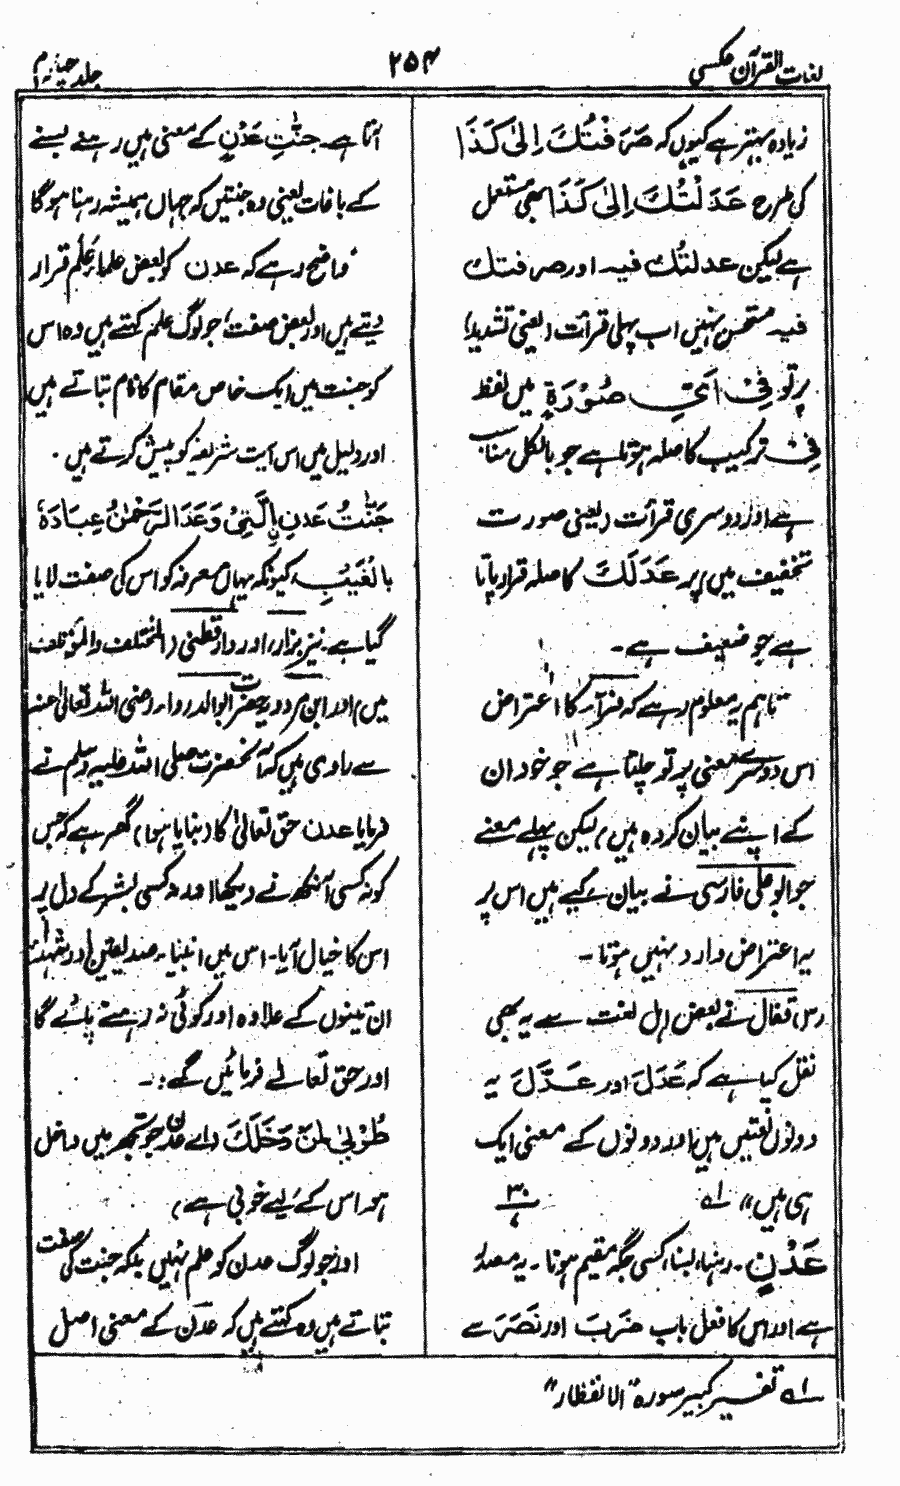 لغات القرآن عکسی
۲۵۴
جلد چہارم
زیادہ بہتر ہے کیوں کہ صَرَفْتُكَ اِلیٰ كَذَا
کی طرح عَدَلْتُكَ اِلیٰ كَذَا بھی مستعمل
ہے لیکن عدلتُك فیہ اور صرفتك
فیہ مستحسن نہیں اب پہلی قرأت (یعنی تشدید)
پر تو فِیْ اَیِّ صُوْرَةٍ میں لفظ
فِیْ ترکیب کا صلہ ہوتا ہے جو بالکل مناسب
ہے اور دوسری قرأت (یعنی صورت
تخفیف میں) پر عَدَلَكَ کا صلہ قرار پاتا
ہے جو ضعیف ہے۔
تاہم یہ معلوم رہے کہ فرّاء کا اعتراض
اس دوسرے معنی پر تو چلتا ہے جو خود ان
کے اپنے بیان کردہ ہیں، لیکن پہلے معنے
جو ابو علی فارسی نے بیان کیے ہیں اس پر
یہ اعتراض وارد نہیں ہوتا۔
(س) قفال نے بعض اہل لغت سے یہ بھی
نقل کیا ہے کہ عَدَلَ اور عَدَّلَ یہ
دونوں لغتیں ہیں، اور دونوں کے معنی ایک
ہی ہیں" ۱ھ ۳۰
عَدْنٍ ۔ رہنا، بسنا، کسی جگہ مقیم ہونا ۔ یہ مصدر
ہے اور اس کا فعل باب ضَرَبَ اور نَصَرَ سے
آتا ہے۔ جنّٰتِ عَدْنٍ کے معنی ہیں رہنے بسنے
کے باغات یعنی وہ جنتیں کہ جہاں ہمیشہ رہنا ہوگا
واضح رہے کہ عدن کو بعض علماء عَلَم قرار
دیتے ہیں اور بعض صفت، جو لوگ علم کہتے ہیں وہ اس
کو جنت میں ایک خاص مقام کا نام بتاتے ہیں
اور دلیل میں اس آیت شریفہ کو پیش کرتے ہیں ۔
جَنّٰتُ عَدْنِ اِلَّتِیْ وَعَدَ الرَّحْمٰنُ عِبَادَهٗ
بِالْغَیْبِ، کیونکہ یہاں معرفہ کو اس کی صفت لایا
گیا ہے۔ نیز بزار، اور دارقطنی (المختلف والمؤتلف
میں) اور ابن مردویہ حضرت ابوالدرداء رضی اللہ تعالیٰ عنہ
سے راوی ہیں کہ آنحضرت صلی اللہ علیہ وسلم نے
فرمایا عدن حق تعالیٰ کا (بنایا ہوا) گھر ہے کہ جس
کو نہ کسی آنکھ نے دیکھا اور نہ کسی بشر کے دل پر
اس کا خیال آیا۔ اس میں انبیا، صدیقین اور شہداء
ان تینوں کے علاوہ اور کوئی نہ رہنے پائے گا
اور حق تعالےٰ فرمائیں گے:۔
طُوْبیٰ لِمَنْ دَخَلَكَ (اے عدن جو تجھ میں داخل
ہو اس کے لیے خوبی ہے)
اور جو لوگ عدن کو علم نہیں بلکہ جنت کی صفت
بتاتے ہیں وہ کہتے ہیں کہ عدن کے معنی اصل
۱ھ تفسیر کبیر سورہ "الانفطار"